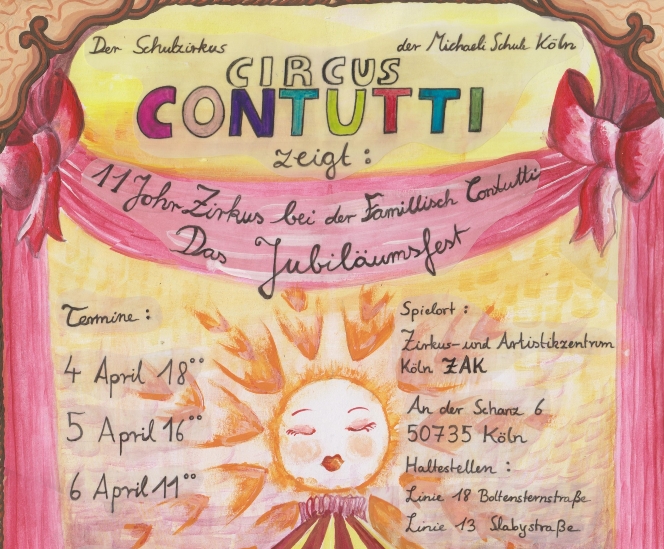 Der Schulzirkus der Michaeli Schule Köln
CIRCUS
CONTUTTI
zeigt :
11 Johr Zirkus bei der Famillisch Contutti
Das Jubiläumsfest
Termine :
4 April 18°°
5 April 16°°
6 April 11°°
Spielort :
Zirkus- und Artistikzentrum
Köln ZAK
An der Schanz 6
50735 Köln
Haltestellen :
Linie 18 Boltensternstraße
Linie 13 Slabystraße